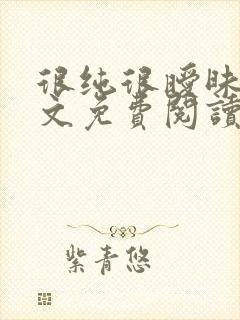 很纯很曖昧
文免費閱讀
紫青悠